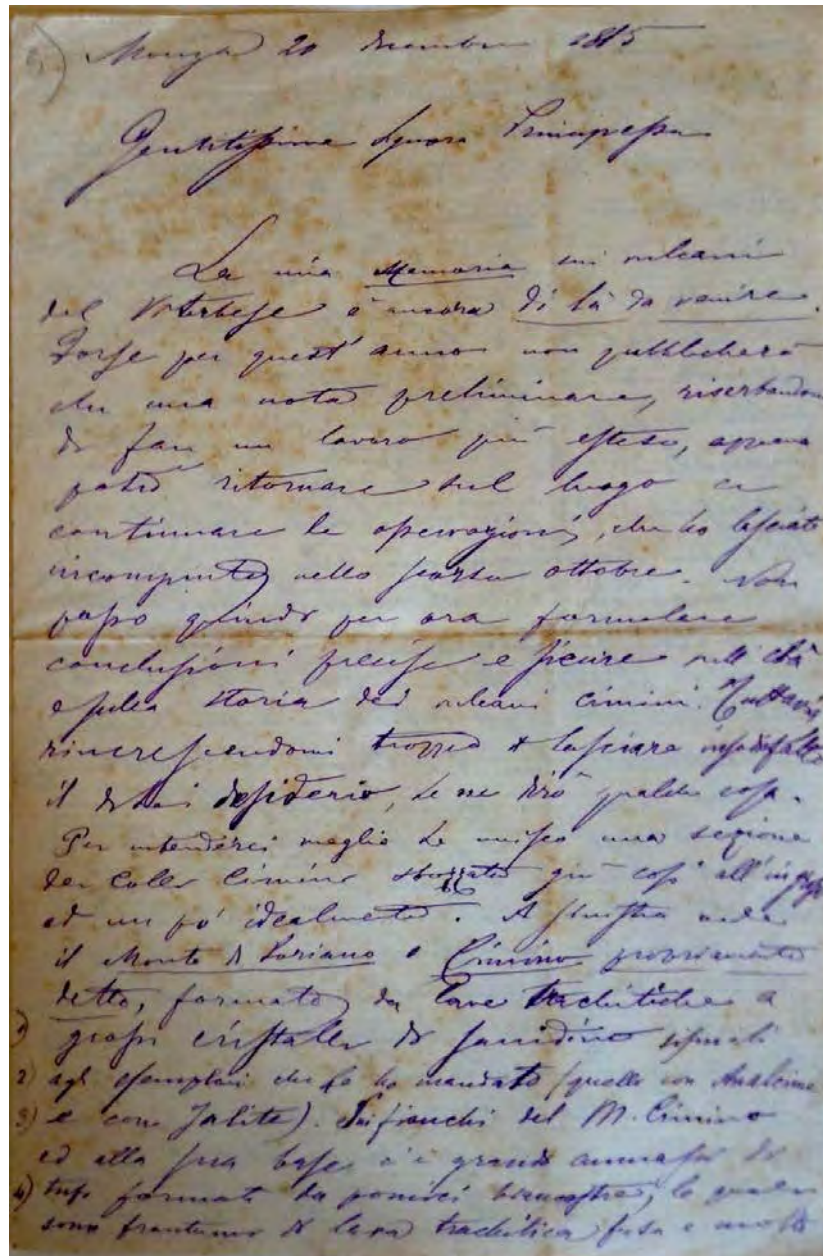 Monza 20 dicembre 1885
Gentilissima Signora Principessa
La mia Memoria sui vulcani
del Viterbese è ancora di là da venire.
Forse per quest'anno non pubblicherò
che una nota preliminare, riserbandomi
di fare un lavoro più esteso, appena
potrò ritornare sul luogo e
continuare le operazioni, che ho lasciato
incompiute nello scorso ottobre. Non
posso quindi per ora formulare
conclusioni precise e sicure sull'età
e sulla storia dei vulcani cimini. Tuttavia
rincrescendomi troppo di lasciare insodisfatto
il di Lei desiderio, Le ne dirò qualche cosa.
Per intenderci meglio Le unisco una sezione
dei Colli Cimini abbozzata giù così all'ingrosso
ed un po' idealmente. A sinistra vede
il Monte di Soriano o Cimino propriamente
detto, formato da lave trachitiche a
1) grossi cristalli di sanidino
2) agli esemplari che Le ho mandato (quelle con Analcime
3) e con Jalite). Sui fianchi del M. Cimino
ed alla sua base c'è grandi ammassi di
4) tufo formati da pomici biancastre, le quali
sono frantumi di lava trachitica fusa e